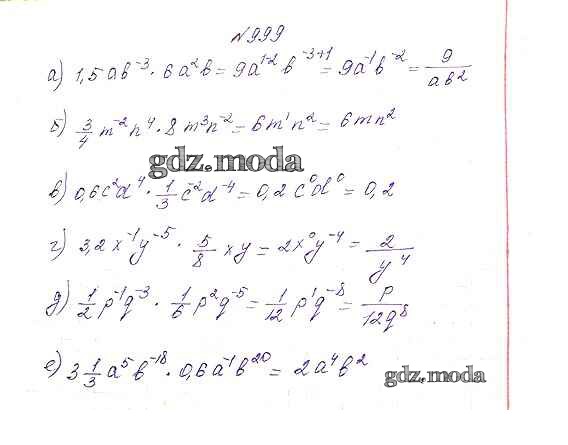 №999
а) 1,5ab⁻³ · 6a²b = 9a¹⁻² b⁻³⁺¹ = 9a⁻¹b⁻² = 9/ab²
б) 3/4 m⁻²n⁴ · 8m³n⁻² = 6m¹n² = 6mn²
gdz.moda
в) 0,6c²d⁴ · 1/3 c⁻²d⁻⁴ = 0,2c⁰d⁰ = 0,2
г) 3,2x⁻¹y⁻⁵ · 5/8 xy = 2x⁰y⁻⁴ = 2/y⁴
д) 1/2 p⁻¹q⁻³ · 1/6 p²q⁻⁵ = 1/12 p¹q⁻⁸ = p/12q⁸
е) 3 1/3 a⁵b⁻¹⁸ · 0,6a⁻¹b²⁰ = 2a⁴b²
gdz.moda